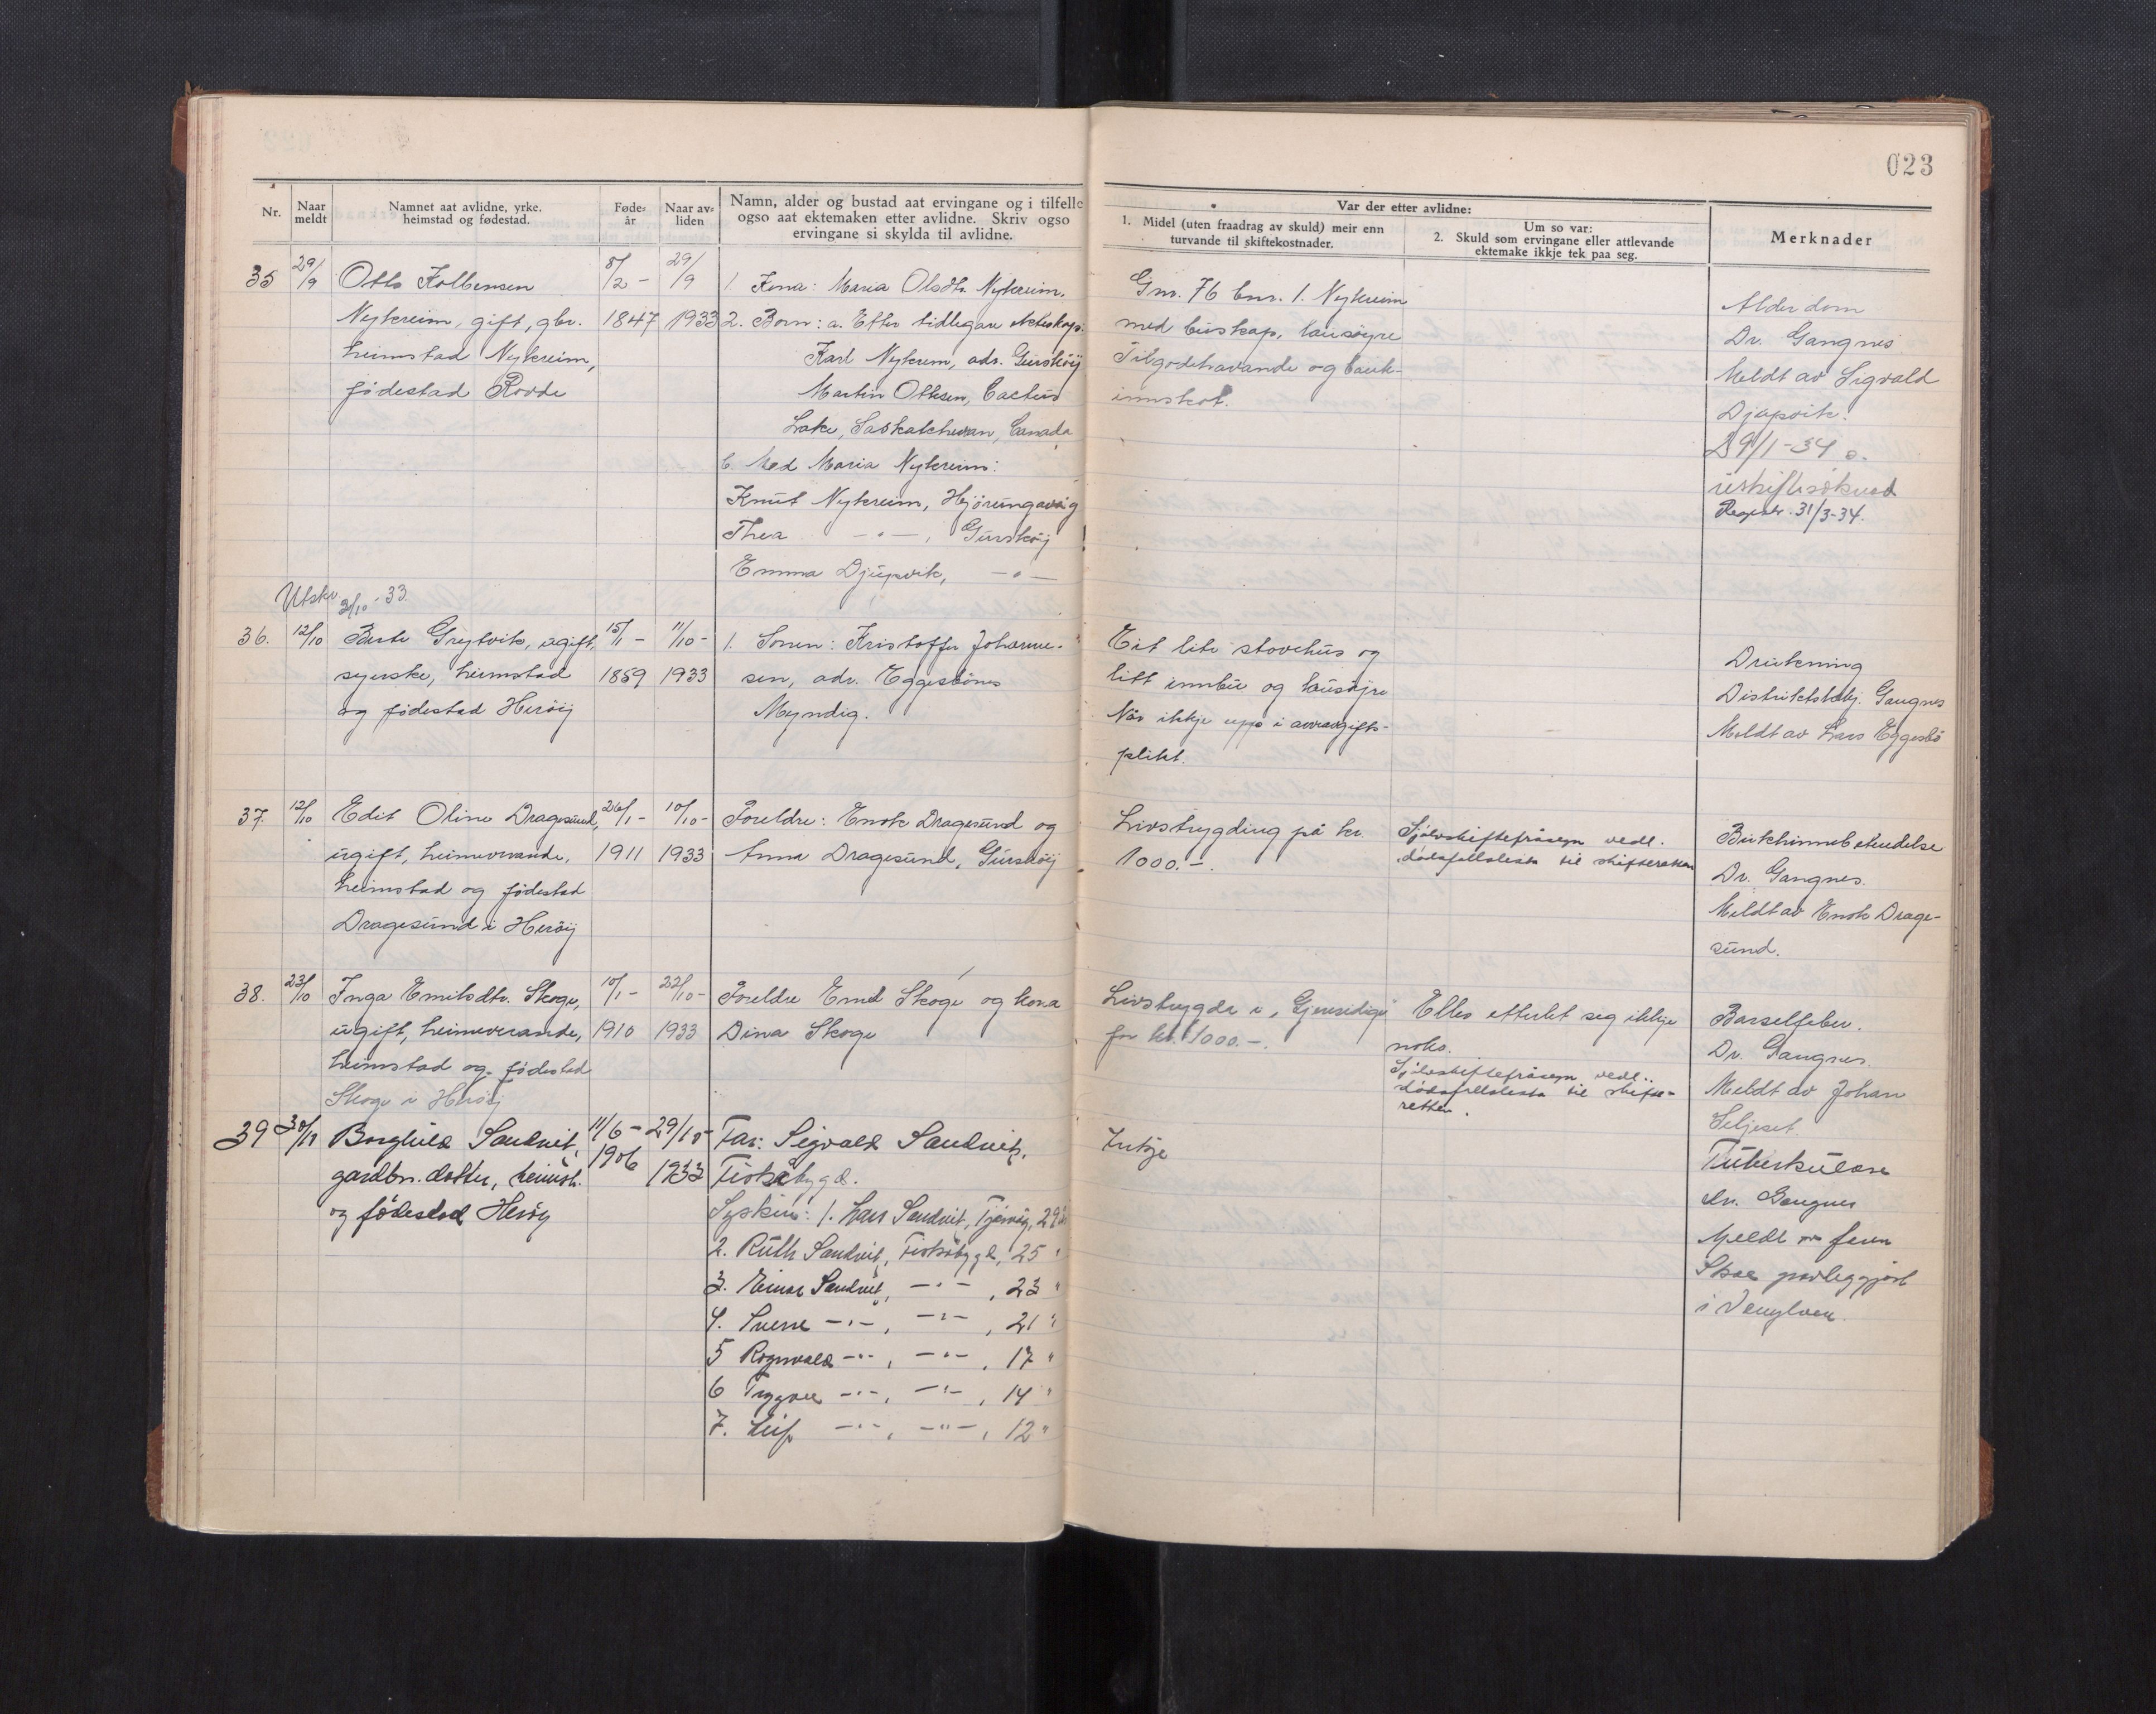 023
Nr.
Naar meldt
Namnet aat avlidne, yrke.
heimstad og fødestad.
Føde-
år
Naar av-
liden
Namn, alder og bustad aat ervingane og i tilfelle
ogso aat ektemaken etter avlidne. Skriv ogso
ervingane si skylda til avlidne.
Var der etter avlidne:
1. Midel (uten fraadrag av skuld) meir enn
turvande til skiftekostnader.
Um so var:
2. Skuld som ervingane eller attlevande
ektemake ikkje tek paa seg.
Merknader
35 29/9 Otto Kolbensen 8/2 - 29/9
Nykreim, gift, gbr. 1847 1933
heimstad Nykreim,
fødestad Rovde
1. Kona: Maria Olsdtr. Nykreim.
2. Born: a. Etter tidlegare ekteskap:
Karl Nykrem, adr. Gurskøy
Martin Ottesen, Cactus
Lake, Saskatchewan, Canada
b. Med Maria Nykreim:
Knut Nykreim, Hjørungavåg
Thea -"-, Gurskøy
Emma Djupvik, -"-
Gnr. 76 bnr. 1. Nykreim
med buskap, lausøyre
Tilgodehavande og bank-
innskot.
Alderdom
Dr. Gangnes
Meldt av Sigvald
Djupvik.
9/1-34
uskiftesøknad
Registr. 31/3-34.
Utskr. 31/10-33.
36. 12/10 Berte Grytvik, ugift, 15/1 - 11/10 -
syerske, heimstad 1859 1933
og fødestad Herøy
1. Sonen: Kristoffer Johanne-
sen, adr. Eggesbønes
Myndig.
Eit lite stovehus og
litt innbu og lausøyre
Når ikkje upp i arvavgifts-
plikt.
Drukning
Distriktslækj. Gangnes
Meldt av Lars Eggesbø
37. 12/10 Edit Oline Dragesund, 26/1 - 10/10 -
ugift, heimeverande, 1911 1933
heimstad og fødestad
Dragesund i Herøy
Foreldre: Enok Dragesund og
Anna Dragesund, Gurskøy
Livstrygding på kr.
1000.-.
Sjølvskiftefråsegn vedl.
dødsfallslista til skifteretten
Bukhinnebetendelse
Dr. Gangnes.
Meldt av Enok Drage-
sund.
38. 23/10 Inga Emilsdtr. Skoge, 10/1 - 22/10 -
ugift, heimeverande, 1910 1933
heimstad og fødestad
Skoge i Herøy
Foreldre Emil Skoge og kona
Dina Skoge
Livstrygda i "Gjensidige"
for kr. 1000.-.
Elles etterlet seg ikkje
noko.
Sjølvskiftefråsegn vedl.
dødsfallslista til skifte-
retten.
Barselfeber.
Dr. Gangnes.
Meldt av Johan
Seljeset.
39 30/10 Borghild Sandvik, 11/6 - 29/10 -
gardbr. dotter, heimst. 1906 1933
og fødestad Herøy
Far: Sigvald Sandvik,
Fiskåbygd.
Syskin: 1. Lars Sandvik, Tjørvåg, 29 år
2. Ruth Sandvik, Fiskåbygd, 25 "
3. Einar Sandvik, -"-, 23 "
4. Sverre -"-, -"-, 21 "
5 Rognvald -"-, -"-, 17 "
6 Tryggve -"-, -"-, 14 "
7. Leif -"-, -"-, 12 "
Inkje
Tuberkulose
dr. Gangnes
Meldt av faren
Skal jordleggjast
i Vanylven.